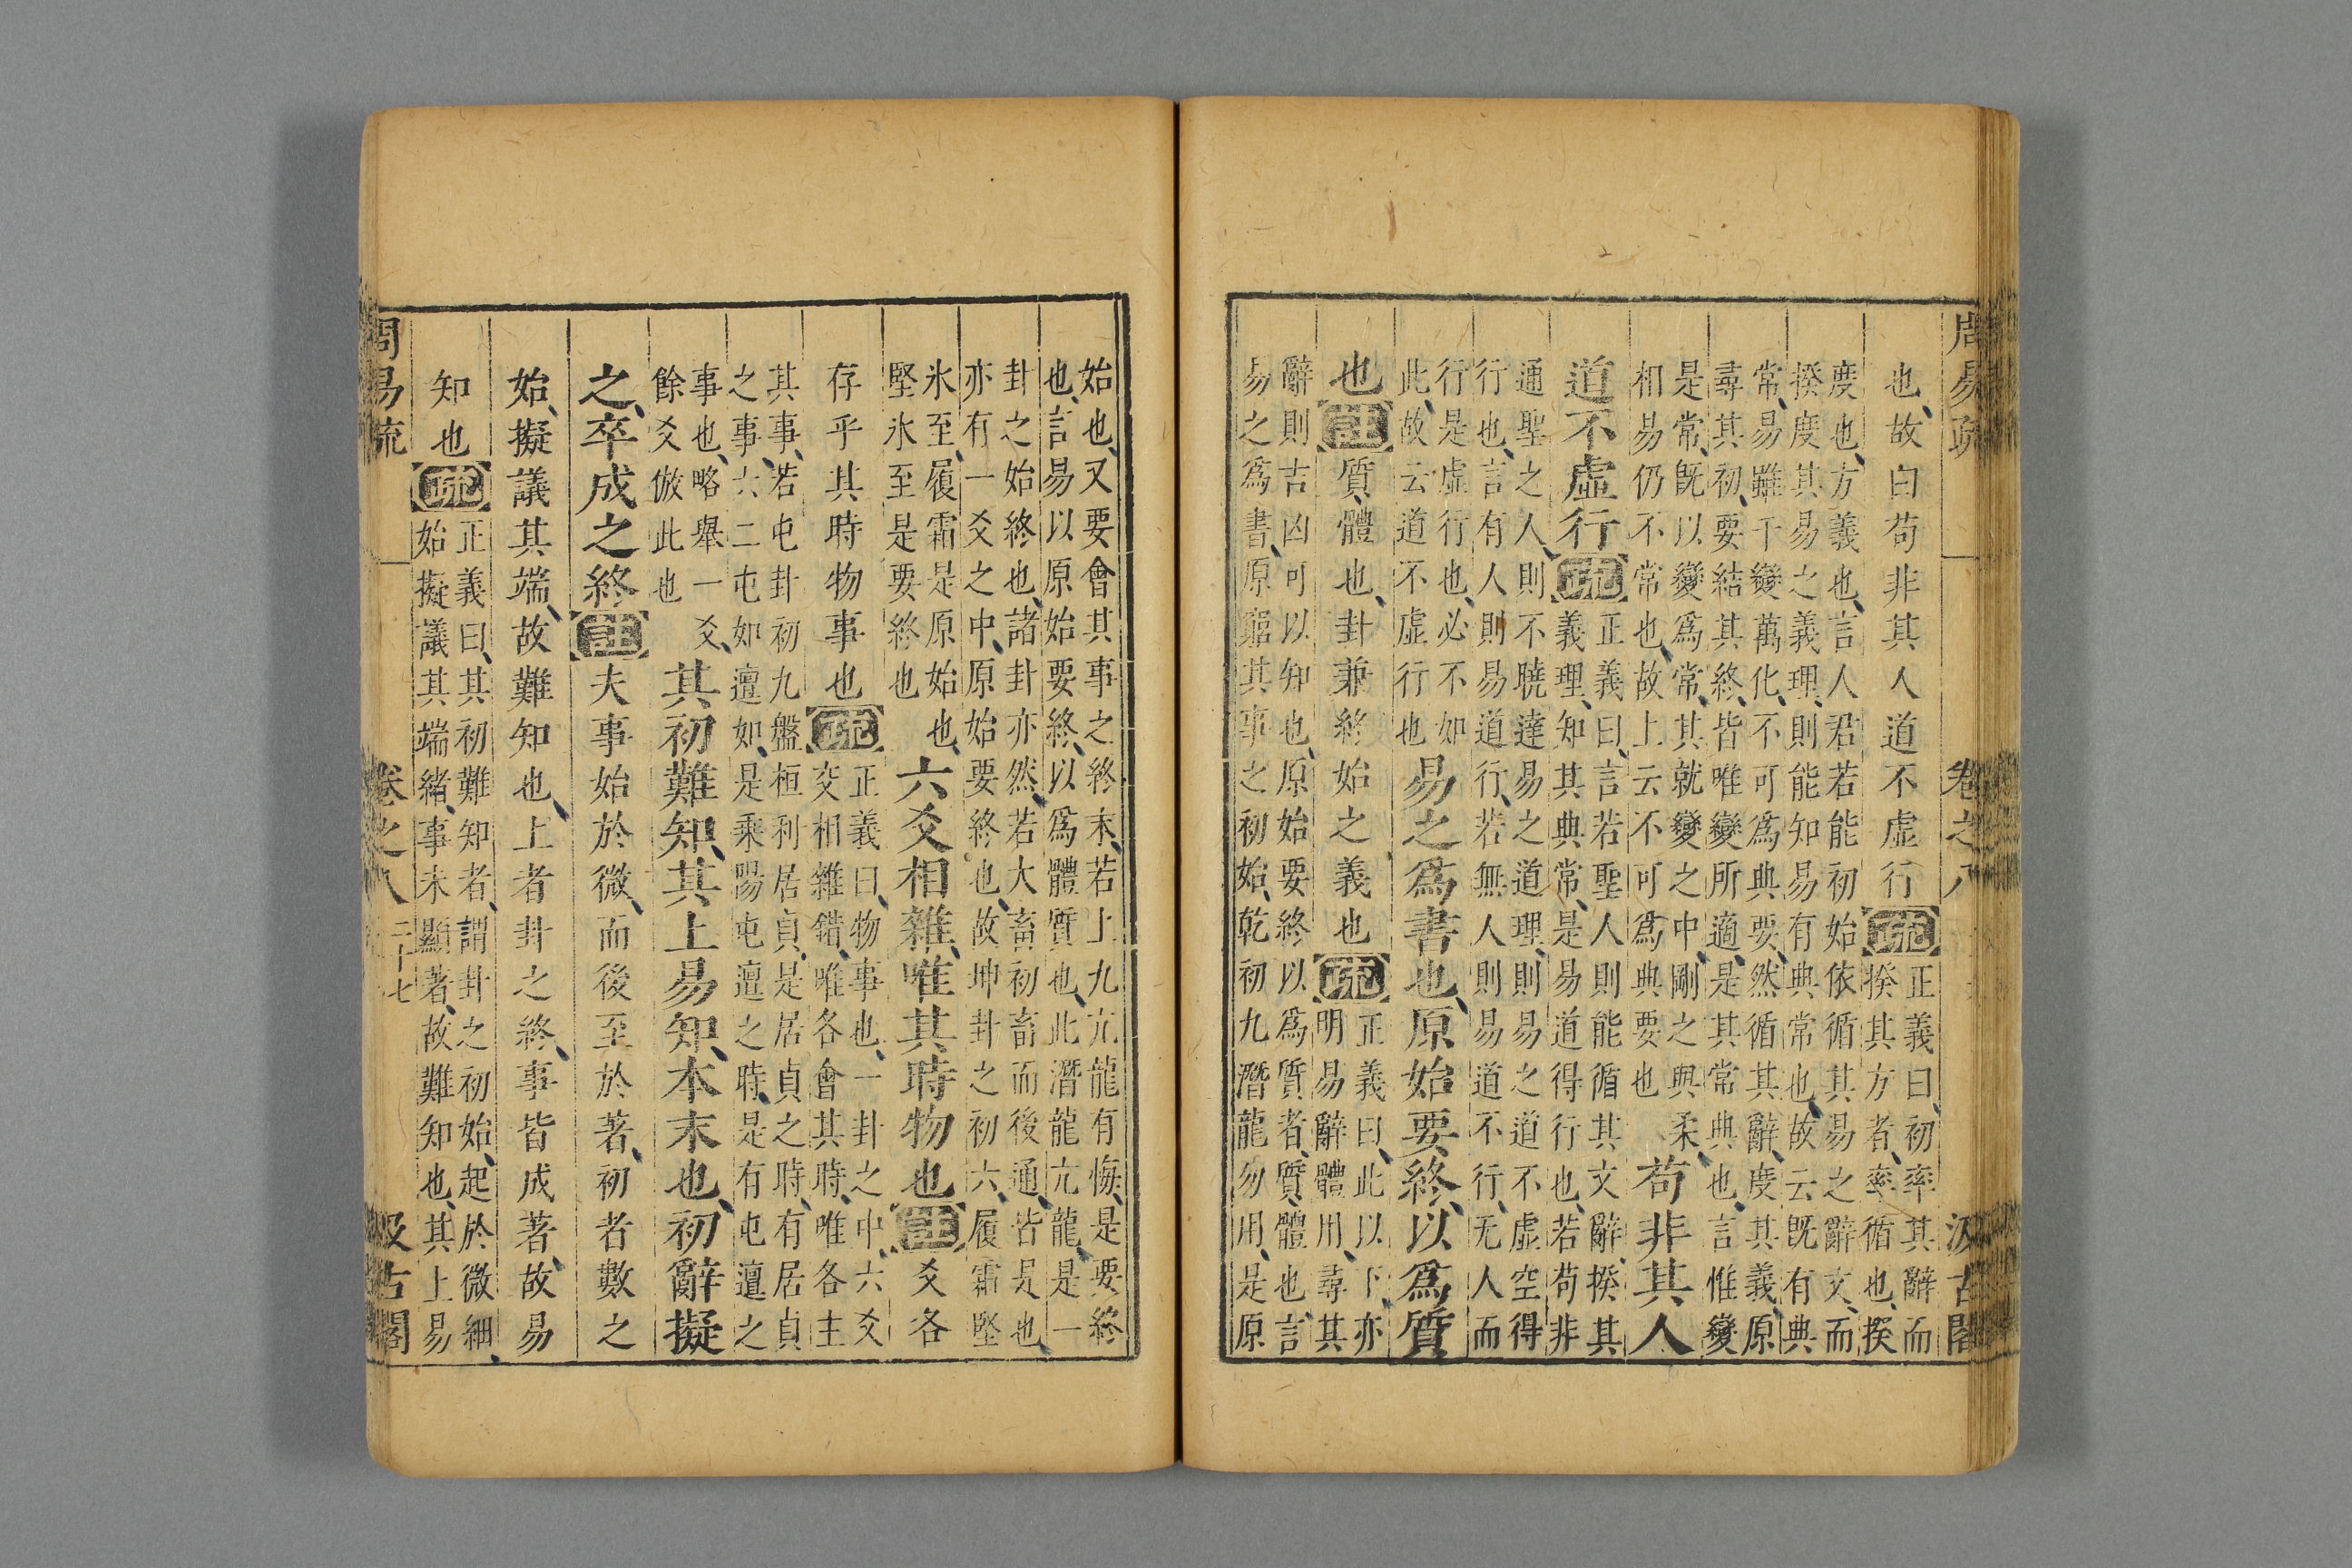 周易疏 卷之八 汲古閣
也故曰苟非其人道不虛行疏正義曰初率其辭而
揆其方者率循也揆
度也方義也言人君若能初始依循其易之辭文而
揆度其易之義理則能知易有典常也故云旣有典
常易雖千變萬化不可爲典要然循其辭度其義原
尋其初要結其終皆唯變所適是其常典也言惟變
是常旣以變爲常其就變之中剛之與柔
相易仍不常也故上云不可爲典要也
苟非其人
道不虛行疏正義曰言若聖人則能循其文辭揆其
義理知其典常是易道得行也若苟非
通聖之人則不曉達易之道理則易之道不虛空得
行也言有人則易道行若無人則易道不行无人而
行是虛行也必不如
此故云道不虛行也
易之爲書也原始要終以爲質
也註質體也卦兼終始之義也疏正義曰此以下亦
明易辭體用尋其
辭則吉凶可以知也原始要終以爲質者質體也言
易之爲書原窮其事之初始乾初九潛龍勿用是原
始也又要會其事之終末若上九亢龍有悔是要終
也言易以原始要終以爲體質也此潛龍亢龍是一
卦之始終也諸卦亦然若大畜初畜而後通皆是也
亦有一爻之中原始要終也故坤卦之初六履霜堅
氷至履霜是原始也
堅氷至是要終也
六爻相雜唯其時物也註爻各
存乎其時物事也疏正義曰物事也一卦之中六爻
交相雜錯唯各會其時唯各主
其事若屯卦初九盤桓利居貞是居貞之時有居貞
之事六二屯如邅如是乘陽屯邅之時是有屯邅之
事也略舉一爻
餘爻倣此也
其初難知其上易知本末也初辭擬
之卒成之終註夫事始於微而後至於著初者數之
始擬議其端故難知也上者卦之終事皆成著故易
知也疏正義曰其初難知者謂卦之初始起於微細
始擬議其端緒事未顯著故難知也其上易
周易疏 卷之八 二十七 汲古閣